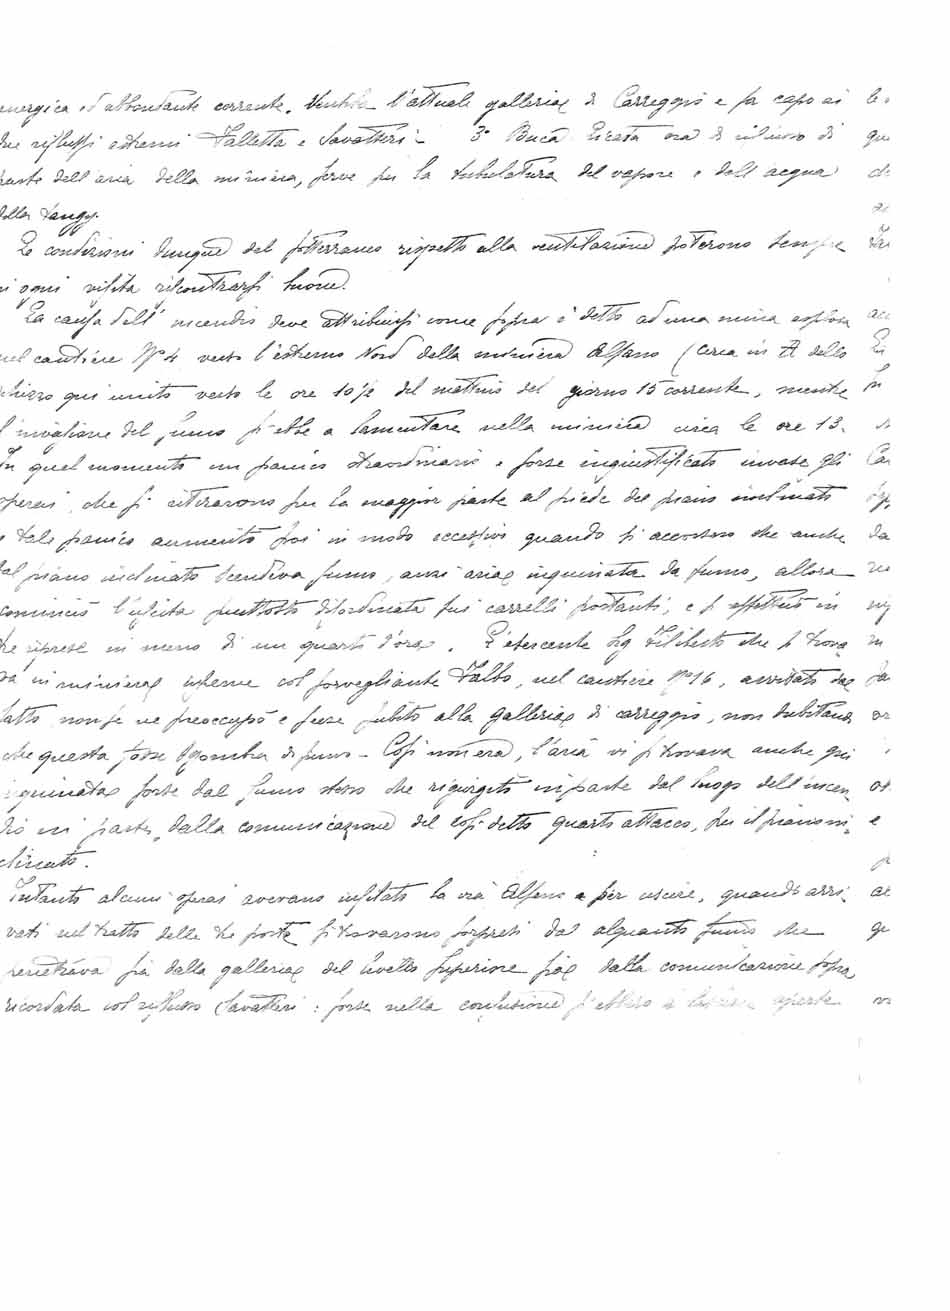 energica ed abbondante corrente. Ventila l'attuale galleria di Carreggio e fa capo ai
due riflussi estremi Falletta e Savatteri - 3° Buca Lisata ora di riflusso di
parte dell'aria della miniera, serve per la tubulatura del vapore e dell'acqua
della
Le condizioni dunque del sotterraneo rispetto alla ventilazione poterono sempre
in ogni visita riscontrarsi buone.
La causa dell'incendio deve attribuirsi come sopra è detto ad una mina esplosa
nel cantiere N° 4 verso l'estremo Nord della miniera Alfano (circa in A dello
schizzo qui unito verso le ore 10½ del mattino del giorno 15 corrente, mentre
l'invasione del fumo si ebbe a lamentare nella miniera circa le ore 13.
In quel momento un panico straordinario e forse ingiustificato invase gli
operai, che si ritirarono per la maggior parte al piede del piano inclinato
e tale panico aumentò poi in modo eccessivo quando si accorsero che anche
dal piano inclinato scendeva fumo, anzi aria inquinata da fumo, allora
cominciò l'uscita piuttosto disordinata sui carrelli portanti, e si effettuò in
tre riprese in meno di un quarto d'ora. L'esercente Sig Filiberto che si trova
va in miniera insieme col sorvegliante Falbo, nel cantiere N° 16, avvisato del
fatto non se ne preoccupò e scese subito alla galleria di carreggio, non dubitando
che questa fosse sgombra di fumo - Così non era, l'aria vi si trovava anche qui
inquinata forse dal fumo stesso che rigurgitò in parte dal luogo dell'incen
dio in parte dalla comunicazione del così detto quarto attacco, per il piano in
clinato.
Intanto alcuni operai avevano infilato la via Alfano per uscire, quando arri
vati nel tratto delle tre porte si trovarono sorpresi dal alquanto fumo che
penetrava sia dalla galleria del livello superiore sia dalla comunicazione sopra
ricordata col riflusso Savatteri: forse nella confusione s'ebbero a lasciare aperte